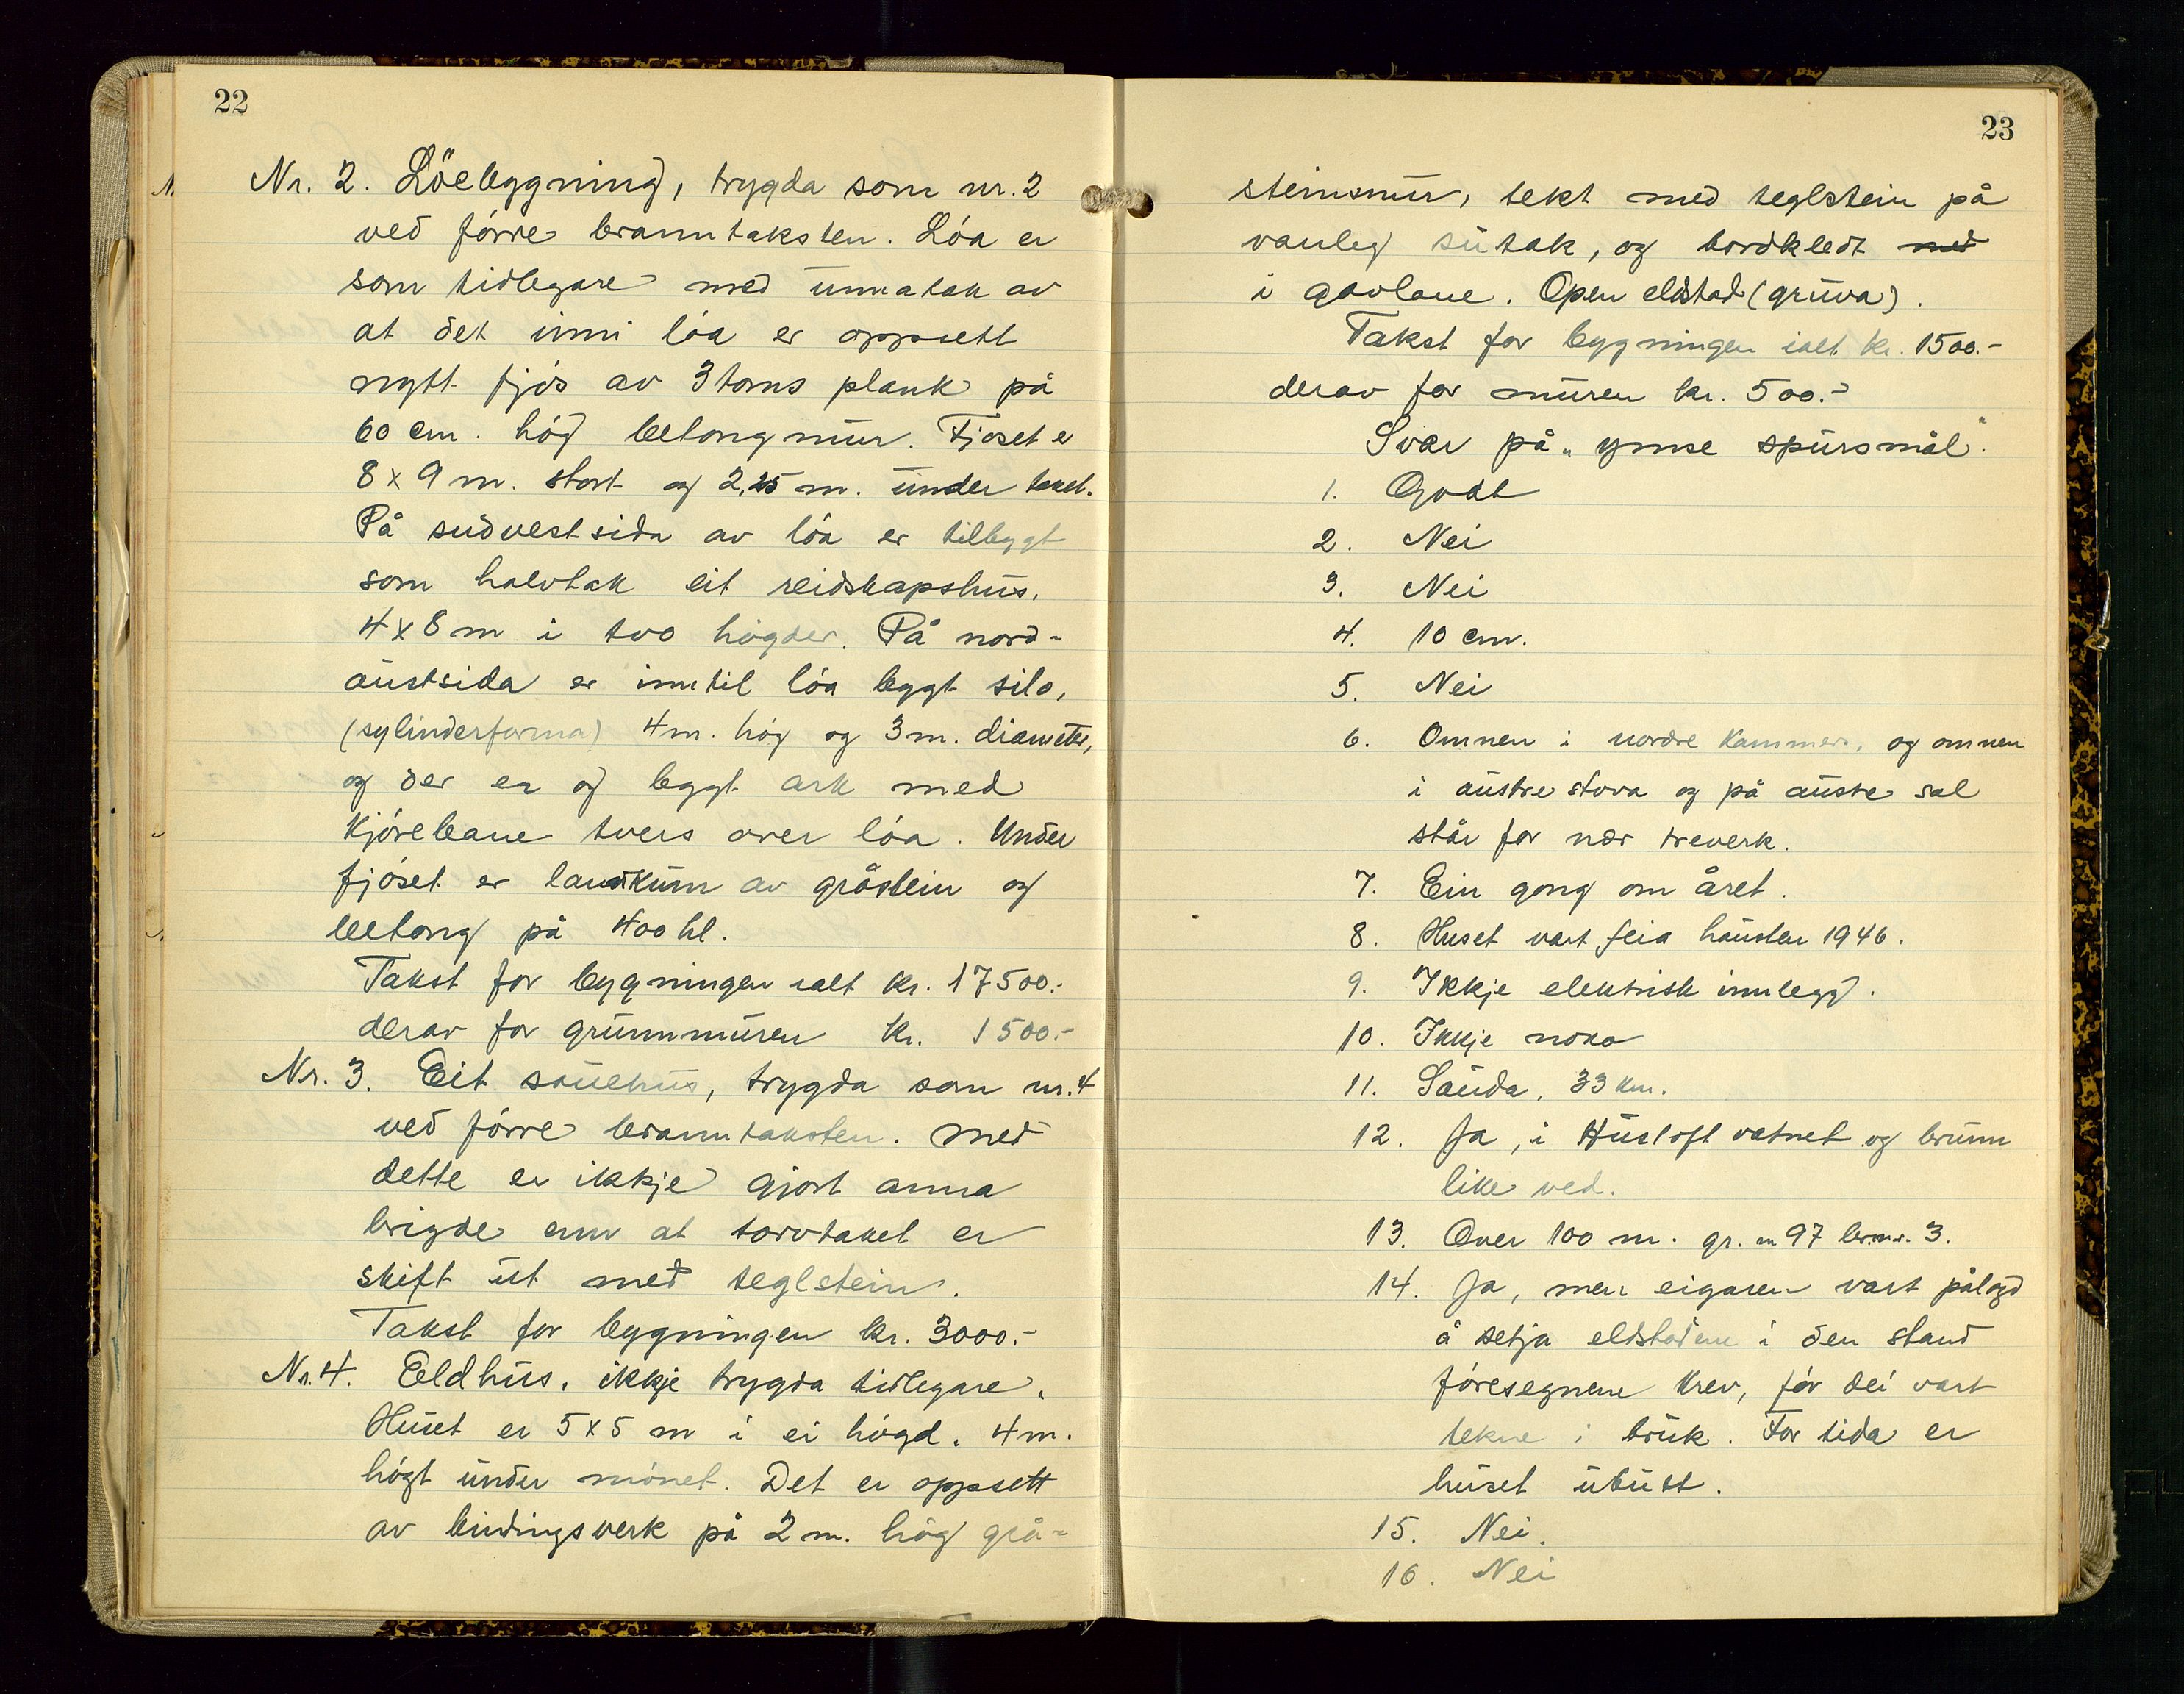 22
Nr. 2. Löebygning, trygda som nr. 2
ved fórre branntaksten. Lóa er
som tidlegare med unnatak av
at det inni lóa er oppsett
nytt fjós av 3 toms plank på
60 cm. hóg betongmur. Fjoset e
8 x 9 m. stort og 2,25 m. under taket.
På sudvestsida av lóa er tilbygt
som halvtak eit reidskapshus.
4 x 8 m i tvo högder. På nord-
austsida er inntil lóa bygt silo,
(sylinderforma) 4 m. hóg og 3 m. diameter,
og der er og bygt ark med
kjórebane tvers over lóa. Under
fjóset er landkum av gråstein og
betong på 400 hl.
Takst for bygningen ialt kr. 17500.-
derav for grunnmuren kr. 1500.-
Nr. 3. Eit sauehus, trygda som nr. 4
ved fórre branntaksten. Med
dette er ikkje gjort anna
brigde enn at torvtaket er
skift ut med teglstein.
Takst for bygningen kr. 3000.-
Nr. 4. Eldhus, ikkje trygda tidlegare.
Huset er 5 x 5 m i ei hógd. 4 m.
högt under mónet. Det er oppsett
av bindingsverk på 2 m. hóg grå-
23
steinsmur, tekt med teglstein på
vanleg sutak, og bordkledt med
i gavlane. Open eldstad (gruva).
Takst for bygningen ialt kr. 1500.-
derav for muren kr. 500.-
Svar på „ymse spursmål".
1. Godt
2. Nei
3. Nei
4. 10 cm.
5. Nei
6. Omnen i nordre kammers, og omnen
i austre stova og på austre sal
står for nær treverk.
7. Ein gong om året.
8. Huset vart feia hausten 1946.
9. Ikkje elektrisk innlegg.
10. Ikkje noko
11. Sauda, 33 km.
12. Ja, i Husloft vatnet og brunn
like ved.
13. Over 100 m. gr. nr 97 br.nr. 3.
14. Ja, men eigaren vart pålagd
å setja eldstadene i den stand
fóresegnene krev, fór dei vart
tekne i bruk. For tida er
huset ubudt.
15. Nei.
16. Nei